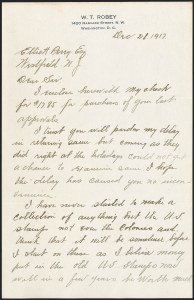 W. T. ROBEY
1420 Harvard Street N. W.
Washington D. C.
Dec 28 1917
Elliott Perry Esq
Westfield N J
Dear Sir
I return herewith my check
for $17.85 for purchase of your last
approvals.
I trust you will pardon my delay
in returning same but coming as they
did right at the holidays could not get
a chance to examine same. I hope
the delay has caused you no incon
I have even started to make a
collection of anything but the U.S.
stamps not even the Colonies and
think that it will be sometime before
I start on them as I believe money
put in the old U.S. stamps
will in a few years be worth